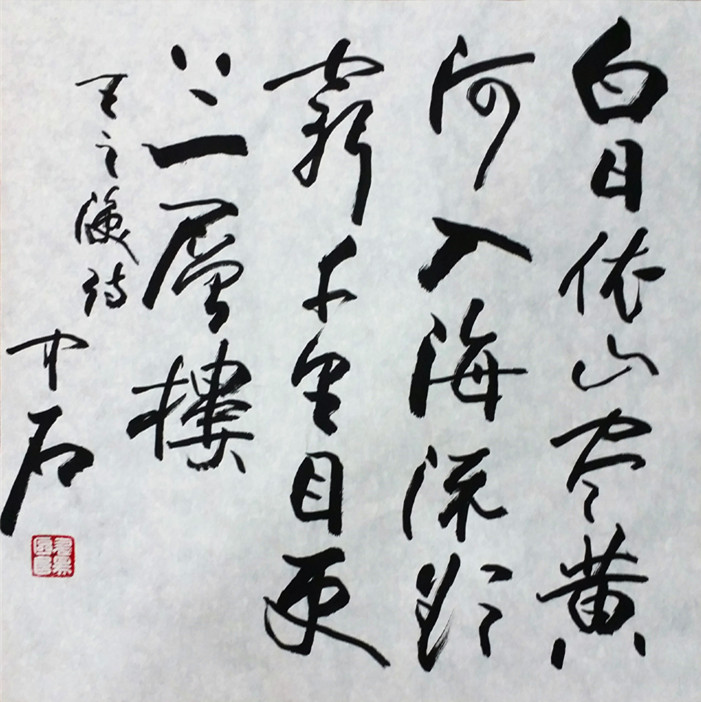 白日依山盡黄
河入海流欲
窮千里目更
上一層樓
王之渙詩
中石